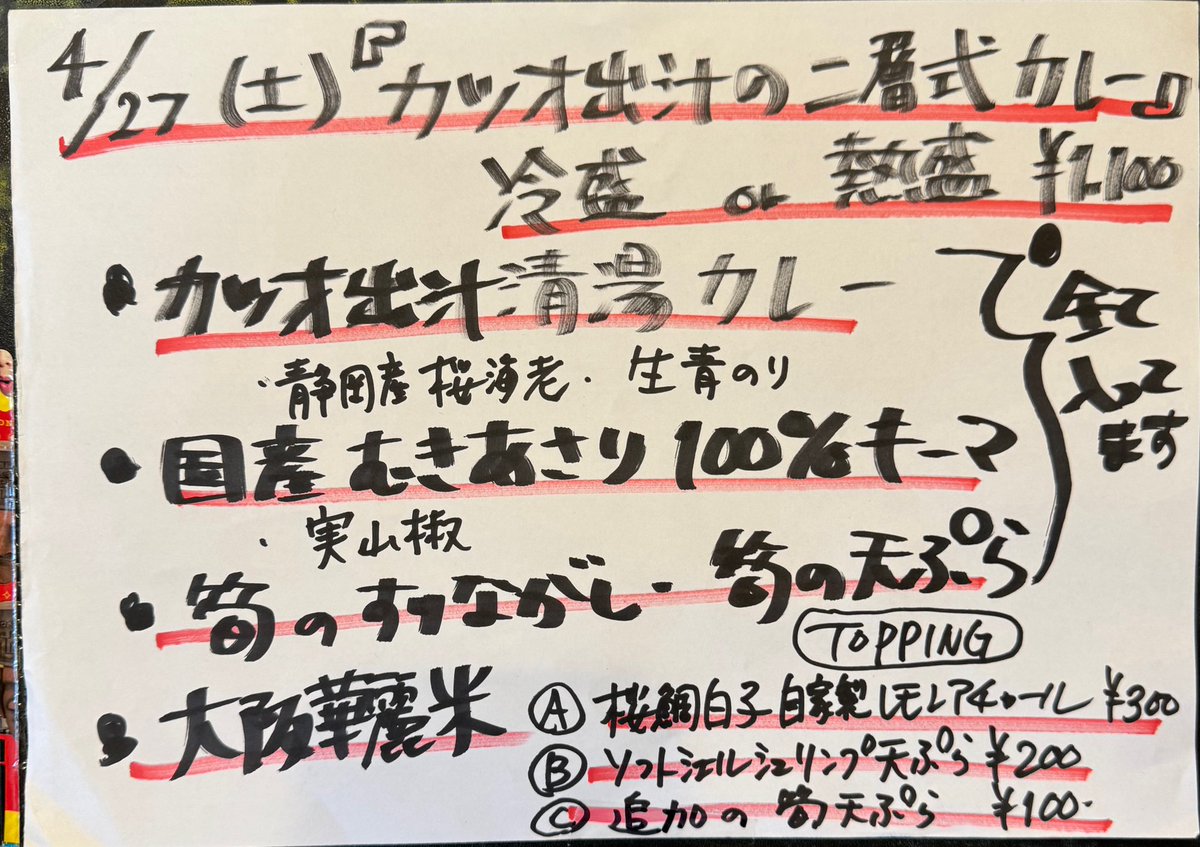 4/27(土)『カツオ出汁の二層式カレー』
冷盛 or 熱盛 ¥1,100
・カツオ出汁清湯カレー
・静岡産桜海老・生青のり
・国産むきあさり100%キーマ
・実山椒
・筍のすりながし・筍の天ぷら
・大阪華麗米
全て
入って
ます
TOPPING
Ⓐ 桜鯛白子自家製レモンアチャール ¥300
Ⓑ ソフトシェルシュリンプ天ぷら ¥200
Ⓒ 追加の筍天ぷら ¥100